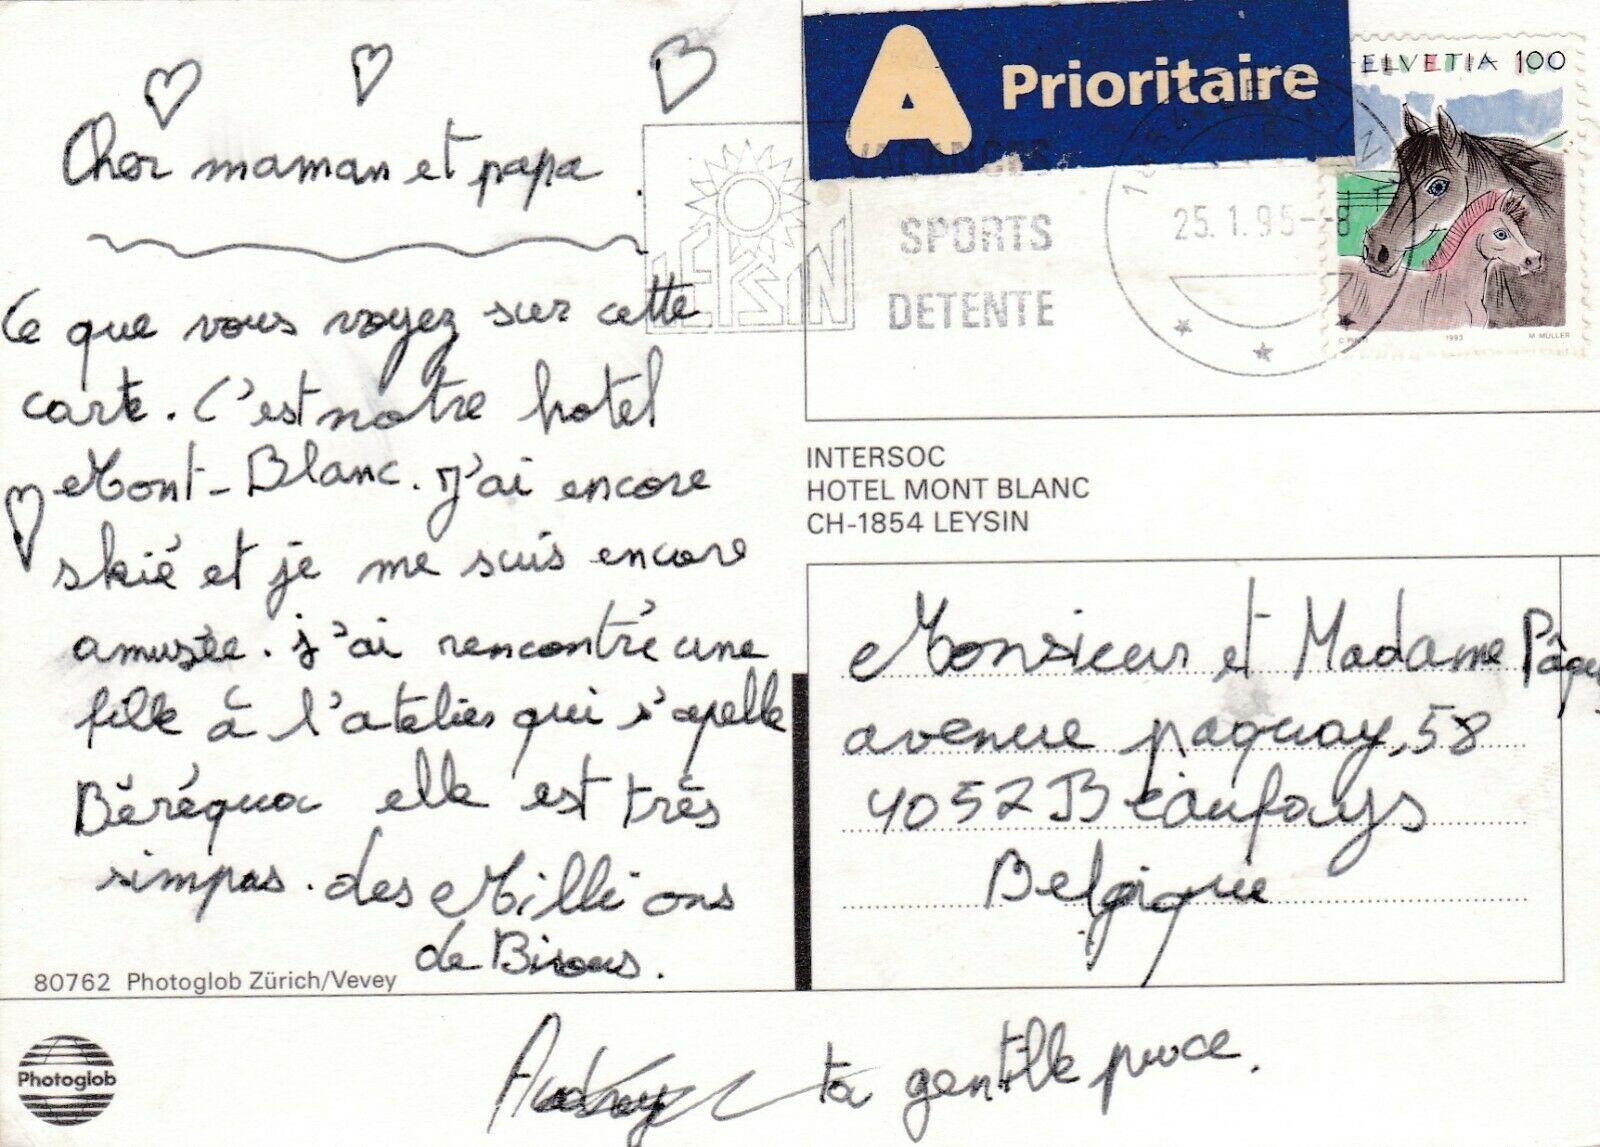 Cher maman et papa
Ce que vous voyez sur cette
carte. C'est notre hotel
Mont-Blanc. J'ai encore
skié et je me suis encore
amusée. j'ai rencontré une
fille à l'atelier qui s'apelle
Béréqua elle est très
simpas. des Millions
de Bisous.
80762 Photoglob Zürich/Vevey
Photoglob
Audrey ta gentille puce.
A Prioritaire
HELVETIA 100
VACANCES
SPORTS
DETENTE
LEYSIN
25.1.95-8
1993 M. MÜLLER
INTERSOC
HOTEL MONT BLANC
CH-1854 LEYSIN
Monsieur et Madame
avenue paquay, 58
4052 Beaufays
Belgique